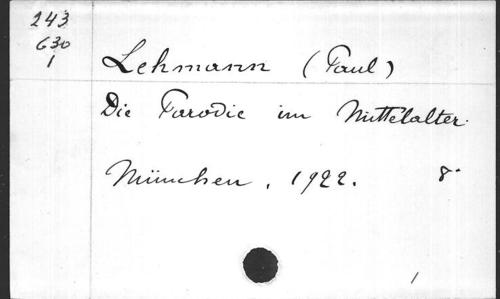 243
630
1
Lehmann (Paul)
Die Parodie im Mittelalter.
München, 1922. 8°
1